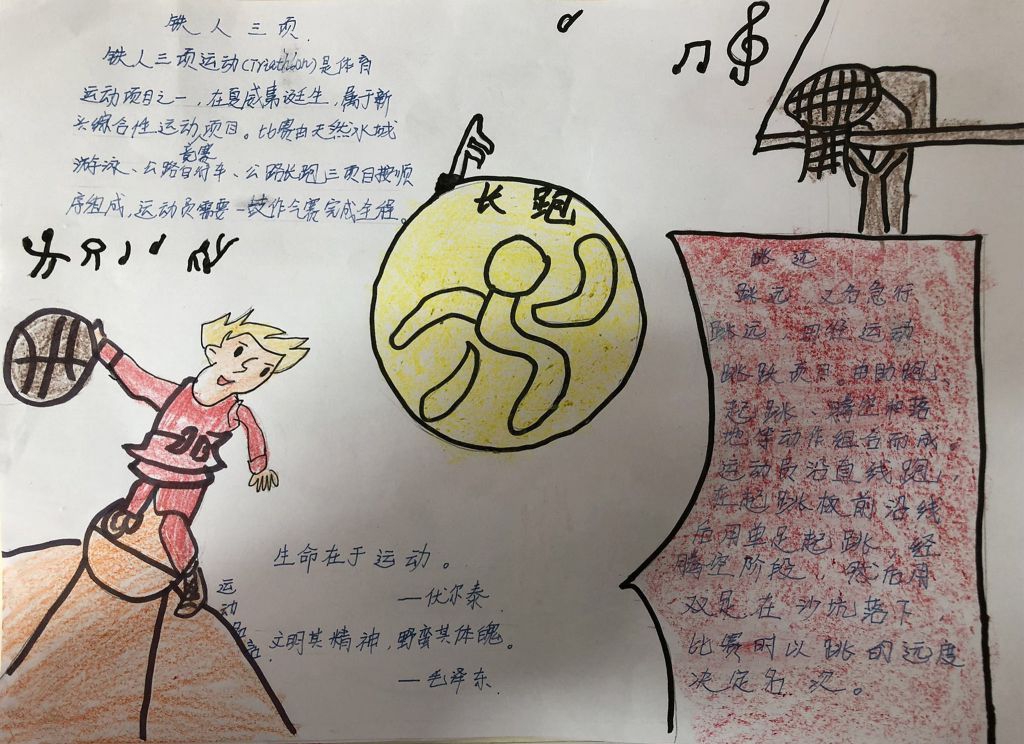 铁人三项
铁人三项运动(Triathlon)是体育
运动项目之一,在夏威夷诞生,属于新
兴综合性运动项目。比赛由天然水域
竞赛
游泳、公路自行车、公路长跑三项目按顺
序组成,运动员需要一鼓作气赛完成全程。
长跑
跳远
跳远,又名急行
跳远,田径运动
跳跃项目。由助跑、
起跳、腾空和落
地等动作组合而成
运动员沿直线跑,
在起跳板前沿线
后用单足起跳,经
腾空阶段,然后用
双足在沙坑落下
比赛时以跳的远度
决定名次。
生命在于运动。
—伏尔泰
运动
文明其精神,野蛮其体魄。
—毛泽东